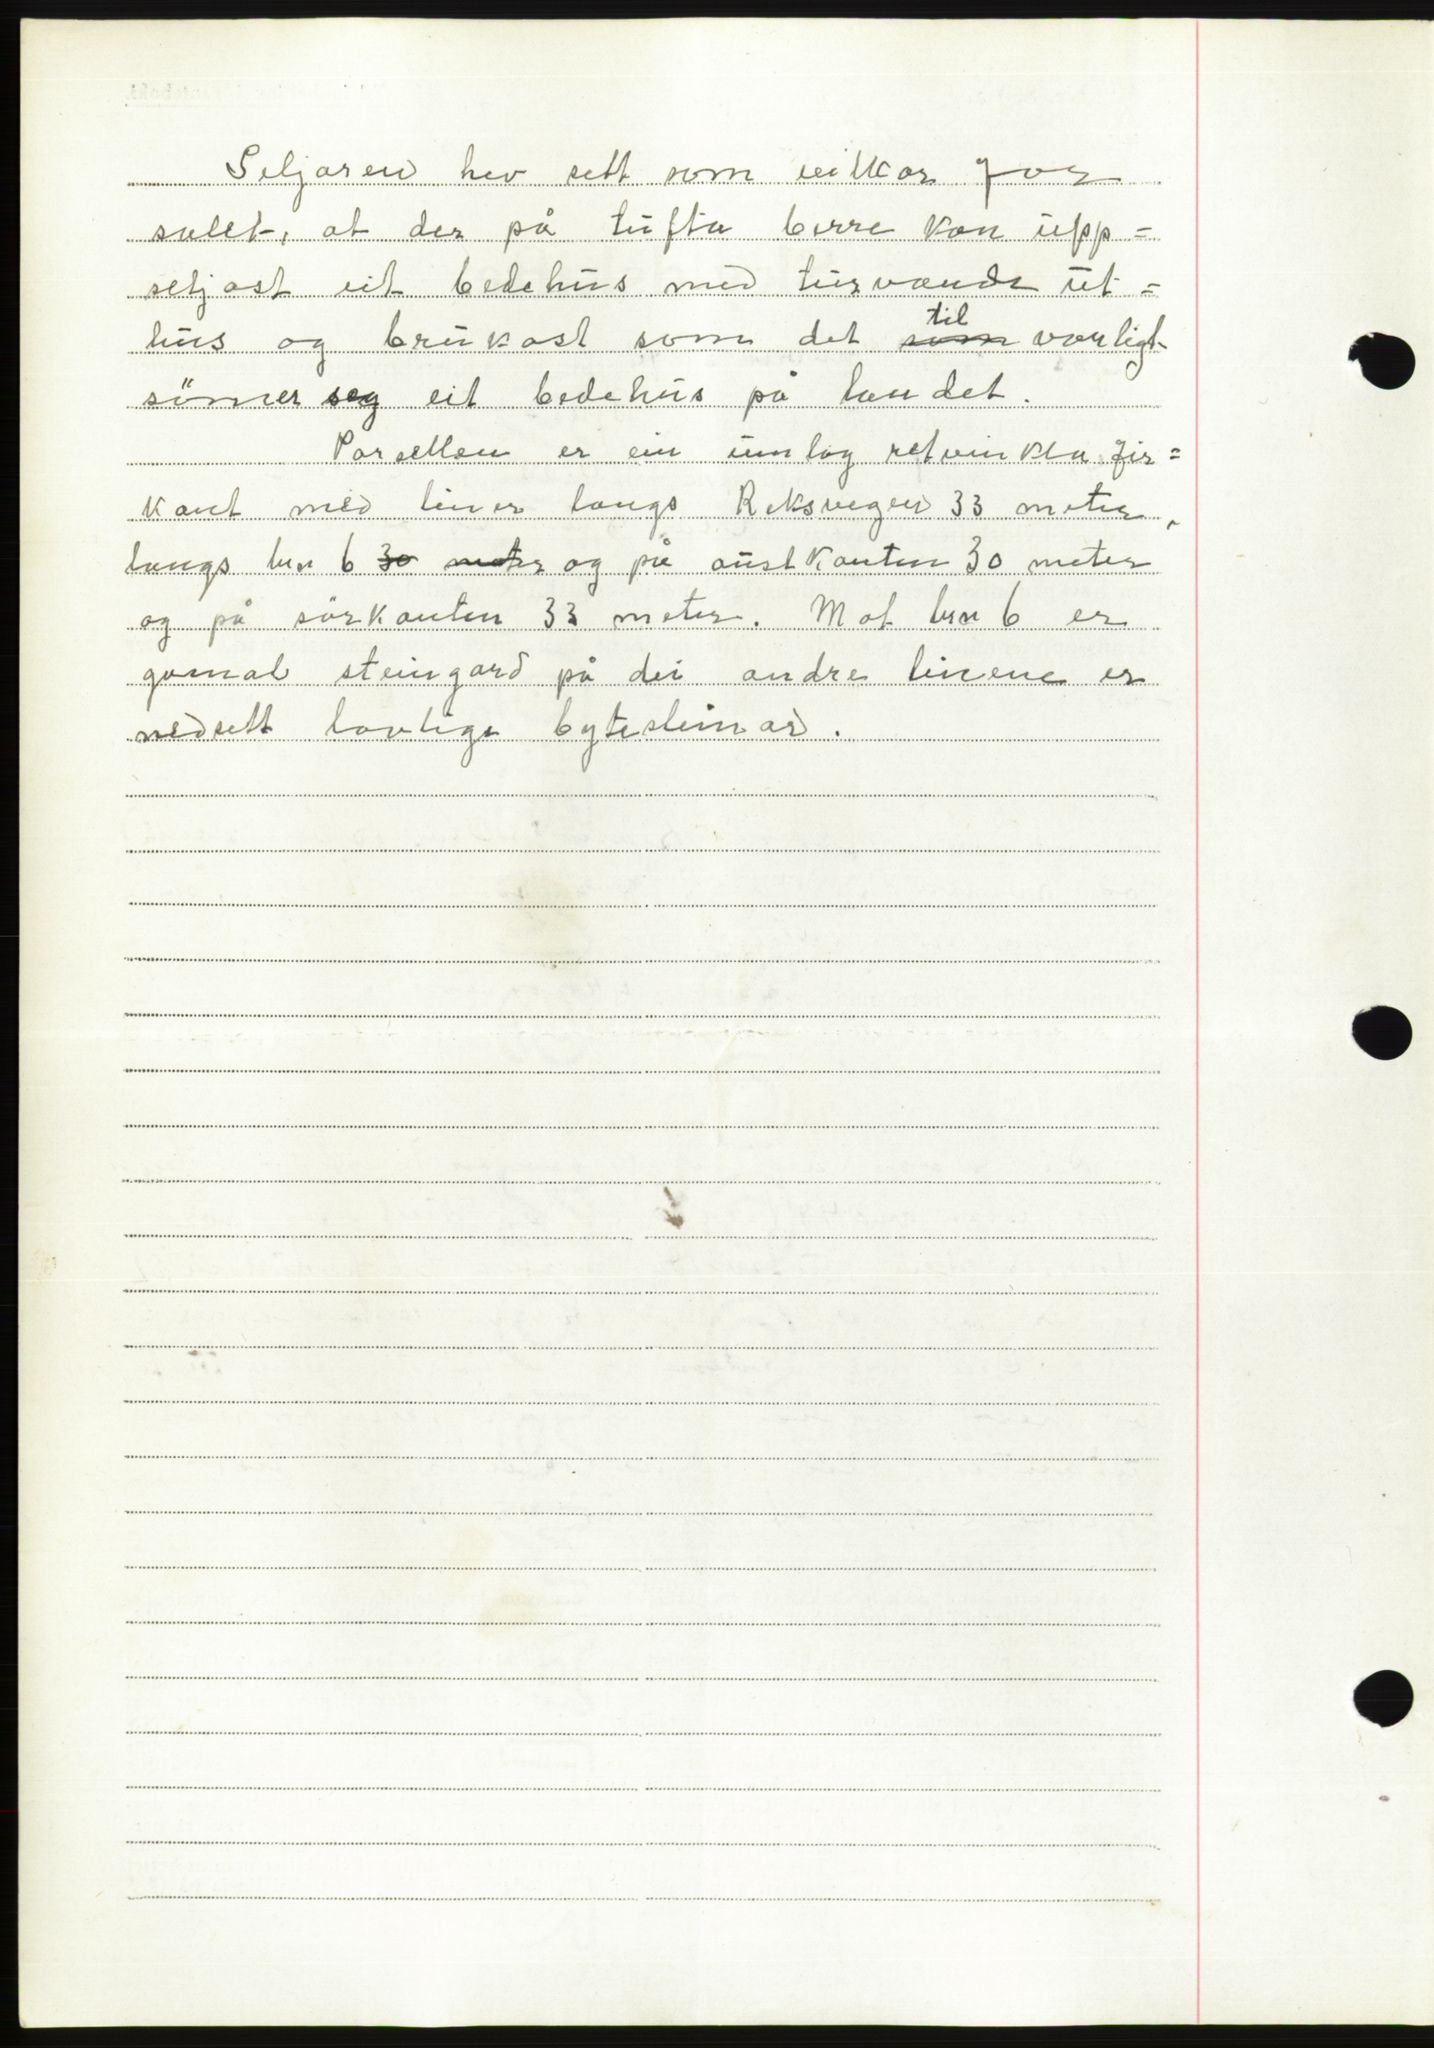 Seljaren hev sett som vilkor for
salet, at der på tufta berre kan upp=
setjast eit bedehus med turvande ut=
hus og brukast som det til som vanligt
sömer seg eit bedehus på landet.
Parsellen er ein umlag retvinkla fir=
kant med liner langs Riksvegen 33 meter,
langs bn 6 30 meter og på austkanten 30 meter
og på sörkanten 33 meter. Mot bn 6 er
gamal steingard på dei andre linene er
nedsett lovlige bytesteinar.